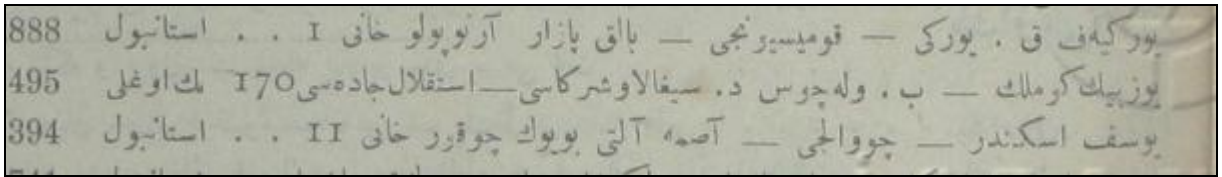 یورکیه‌ف ق . یورکی — قومیسیونجی — بالق پازار آرنوپولو خانی I . . استانبول 888
یوزبیك كرملك — ب . وله‌جوس د. سیغالاوشركاسی — استقلال جاده‌سی 170 بك اوغلی 495
یوسف اسكندر — چووالجی — آصمه آلتی بویوك چوقور خانی II . . استانبول 394